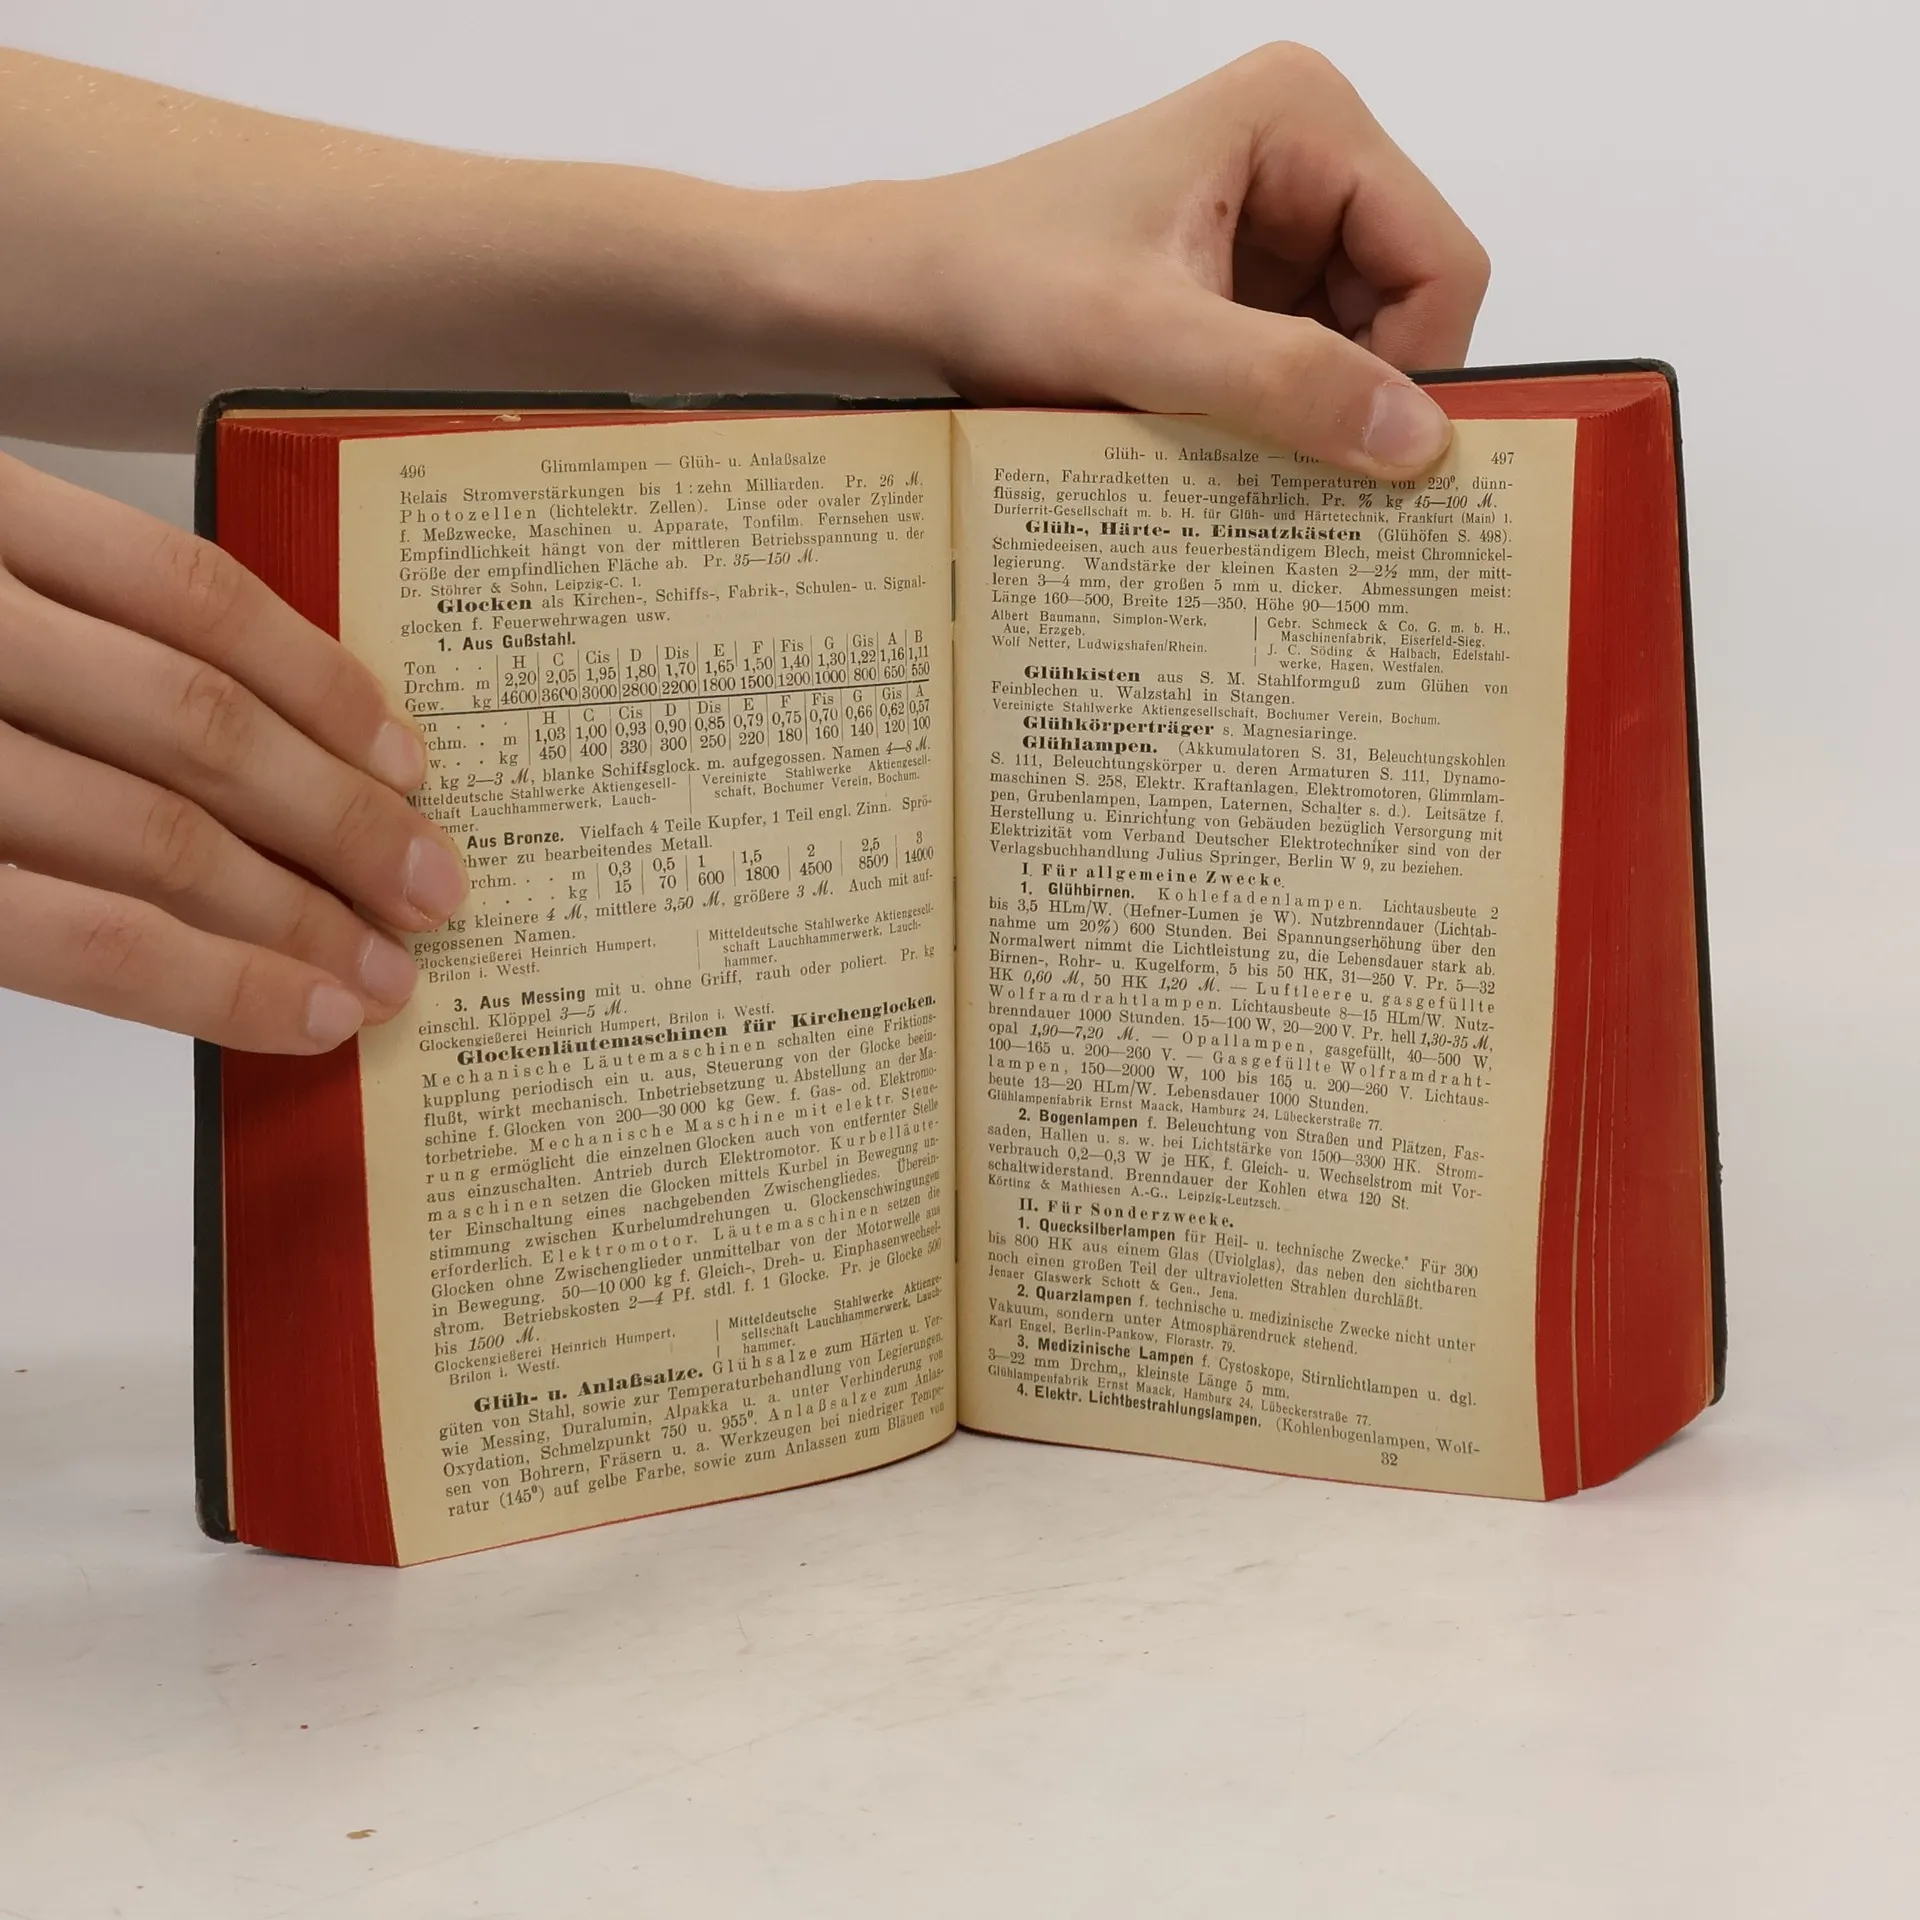 496
Glimmlampen — Glüh- u. Anlaßsalze
Relais Stromverstärkungen bis 1 : zehn Milliarden. Pr. 26 ℳ.
Photozellen (lichtelektr. Zellen). Linse oder ovaler Zylinder
f. Meßzwecke, Maschinen u. Apparate, Tonfilm. Fernsehen usw.
Empfindlichkeit hängt von der mittleren Betriebsspannung u. der
Größe der empfindlichen Fläche ab. Pr. 35—150 ℳ.
Dr. Stöhrer & Sohn, Leipzig-C. 1.
Glocken als Kirchen-, Schiffs-, Fabrik-, Schulen- u. Signal-
glocken f. Feuerwehrwagen usw.
1. Aus Gußstahl.
Ton . . H C Cis D Dis E F Fis G Gis A B
Drchm. m 2,20 2,05 1,95 1,80 1,70 1,65 1,50 1,40 1,30 1,22 1,16 1,11
Gew. kg 4600 3600 3000 2800 2200 1800 1500 1200 1000 800 650 550
on . . . H C Cis D Dis E F Fis G Gis A
chm. . m 1,03 1,00 0,93 0,90 0,85 0,79 0,75 0,70 0,66 0,62 0,57
w. . . kg 450 400 330 300 250 220 180 160 140 120 100
r. kg 2—3 ℳ, blanke Schiffsglock. m. aufgegossen. Namen 4—8 ℳ.
Mitteldeutsche Stahlwerke Aktiengesell-
schaft Lauchhammerwerk, Lauch-
mmer.
Vereinigte Stahlwerke Aktiengesell-
schaft, Bochumer Verein, Bochum.
Aus Bronze. Vielfach 4 Teile Kupfer, 1 Teil engl. Zinn. Sprö-
hwer zu bearbeitendes Metall.
rchm. . . m 0,3 0,5 1 1,5 2 2,5 3
. . . . kg 15 70 600 1800 4500 8500 14000
kg kleinere 4 ℳ, mittlere 3,50 ℳ, größere 3 ℳ. Auch mit auf-
gegossenen Namen.
Glockengießerei Heinrich Humpert,
Brilon i. Westf.
Mitteldeutsche Stahlwerke Aktiengesell-
schaft Lauchhammerwerk, Lauch-
hammer.
3. Aus Messing mit u. ohne Griff, rauh oder poliert. Pr. kg
einschl. Klöppel 3—5 ℳ.
Glockengießerei Heinrich Humpert, Brilon i. Westf.
Glockenläutemaschinen für Kirchenglocken.
Mechanische Läutemaschinen schalten eine Friktions-
kupplung periodisch ein u. aus, Steuerung von der Glocke beein-
flußt, wirkt mechanisch. Inbetriebsetzung u. Abstellung an der Ma-
schine f. Glocken von 200—30 000 kg Gew. f. Gas- od. Elektromo-
torbetriebe. Mechanische Maschine mit elektr. Steue-
rung ermöglicht die einzelnen Glocken auch von entfernter Stelle
aus einzuschalten. Antrieb durch Elektromotor. Kurbelläute-
maschinen setzen die Glocken mittels Kurbel in Bewegung un-
ter Einschaltung eines nachgebenden Zwischengliedes. Überein-
stimmung zwischen Kurbelumdrehungen u. Glockenschwingungen
erforderlich. Elektromotor. Läutemaschinen setzen die
Glocken ohne Zwischenglieder unmittelbar von der Motorwelle aus
in Bewegung. 50—10 000 kg f. Gleich-, Dreh- u. Einphasenwechsel-
strom. Betriebskosten 2—4 Pf. stdl. f. 1 Glocke. Pr. je Glocke 500
bis 1500 ℳ.
Glockengießerei Heinrich Humpert,
Brilon i. Westf.
Mitteldeutsche Stahlwerke Aktienge-
sellschaft Lauchhammerwerk, Lauch-
hammer.
Glüh- u. Anlaßsalze. Glühsalze zum Härten u. Ver-
güten von Stahl, sowie zur Temperaturbehandlung von Legierungen,
wie Messing, Duralumin, Alpakka u. a. unter Verhinderung von
Oxydation, Schmelzpunkt 750 u. 955⁰. Anlaßsalze zum Anlas-
sen von Bohrern, Fräsern u. a. Werkzeugen bei niedriger Tempe-
ratur (145⁰) auf gelbe Farbe, sowie zum Anlassen zum Bläuen von
Glüh- u. Anlaßsalze —
497
Federn, Fahrradketten u. a. bei Temperaturen von 220⁰, dünn-
flüssig, geruchlos u. feuer-ungefährlich. Pr. % kg 45—100 ℳ.
Durferrit-Gesellschaft m. b. H. für Glüh- und Härtetechnik, Frankfurt (Main) 1.
Glüh-, Härte- u. Einsatzkästen (Glühöfen S. 498).
Schmiedeeisen, auch aus feuerbeständigem Blech, meist Chromnickel-
legierung. Wandstärke der kleinen Kasten 2—2½ mm, der mitt-
leren 3—4 mm, der großen 5 mm u. dicker. Abmessungen meist:
Länge 160—500, Breite 125—350, Höhe 90—1500 mm.
Albert Baumann, Simplon-Werk,
Aue, Erzgeb.
Wolf Netter, Ludwigshafen/Rhein.
Gebr. Schmeck & Co. G. m. b. H.,
Maschinenfabrik, Eiserfeld-Sieg.
J. C. Söding & Halbach, Edelstahl-
werke, Hagen, Westfalen.
Glühkisten aus S. M. Stahlformguß zum Glühen von
Feinblechen u. Walzstahl in Stangen.
Vereinigte Stahlwerke Aktiengesellschaft, Bochumer Verein, Bochum.
Glühkörperträger s. Magnesiaringe.
Glühlampen. (Akkumulatoren S. 31, Beleuchtungskohlen
S. 111, Beleuchtungskörper u. deren Armaturen S. 111, Dynamo-
maschinen S. 258, Elektr. Kraftanlagen, Elektromotoren, Glimmlam-
pen, Grubenlampen, Lampen, Laternen, Schalter s. d.). Leitsätze f.
Herstellung u. Einrichtung von Gebäuden bezüglich Versorgung mit
Elektrizität vom Verband Deutscher Elektrotechniker sind von der
Verlagsbuchhandlung Julius Springer, Berlin W 9, zu beziehen.
I. Für allgemeine Zwecke.
1. Glühbirnen. Kohlefadenlampen. Lichtausbeute 2
bis 3,5 HLm/W. (Hefner-Lumen je W). Nutzbrenndauer (Lichtab-
nahme um 20%) 600 Stunden. Bei Spannungserhöhung über den
Normalwert nimmt die Lichtleistung zu, die Lebensdauer stark ab.
Birnen-, Rohr- u. Kugelform, 5 bis 50 HK, 31—250 V. Pr. 5—32
HK 0,60 ℳ, 50 HK 1,20 ℳ. — Luftleere u. gasgefüllte
Wolframdrahtlampen. Lichtausbeute 8—15 HLm/W. Nutz-
brenndauer 1000 Stunden. 15—100 W, 20—200 V. Pr. hell 1,30-35 ℳ,
opal 1,90—7,20 ℳ. — Opallampen, gasgefüllt, 40—500 W,
100—165 u. 200—260 V. — Gasgefüllte Wolframdraht-
lampen, 150—2000 W, 100 bis 165 u. 200—260 V. Lichtaus-
beute 13—20 HLm/W. Lebensdauer 1000 Stunden.
Glühlampenfabrik Ernst Maack, Hamburg 24, Lübeckerstraße 77.
2. Bogenlampen f. Beleuchtung von Straßen und Plätzen, Fas-
saden, Hallen u. s. w. bei Lichtstärke von 1500—3300 HK. Strom-
verbrauch 0,2—0,3 W je HK, f. Gleich- u. Wechselstrom mit Vor-
schaltwiderstand. Brenndauer der Kohlen etwa 120 St.
Körting & Mathiesen A.-G., Leipzig-Leutzsch.
II. Für Sonderzwecke.
1. Quecksilberlampen für Heil- u. technische Zwecke. Für 300
bis 800 HK aus einem Glas (Uviolglas), das neben den sichtbaren
noch einen großen Teil der ultravioletten Strahlen durchläßt.
Jenaer Glaswerk Schott & Gen., Jena.
2. Quarzlampen f. technische u. medizinische Zwecke nicht unter
Vakuum, sondern unter Atmosphärendruck stehend.
Karl Engel, Berlin-Pankow, Florastr. 79.
3. Medizinische Lampen f. Cystoskope, Stirnlichtlampen u. dgl.
3—22 mm Drchm., kleinste Länge 5 mm.
Glühlampenfabrik Ernst Maack, Hamburg 24, Lübeckerstraße 77.
4. Elektr. Lichtbestrahlungslampen. (Kohlenbogenlampen, Wolf-
32